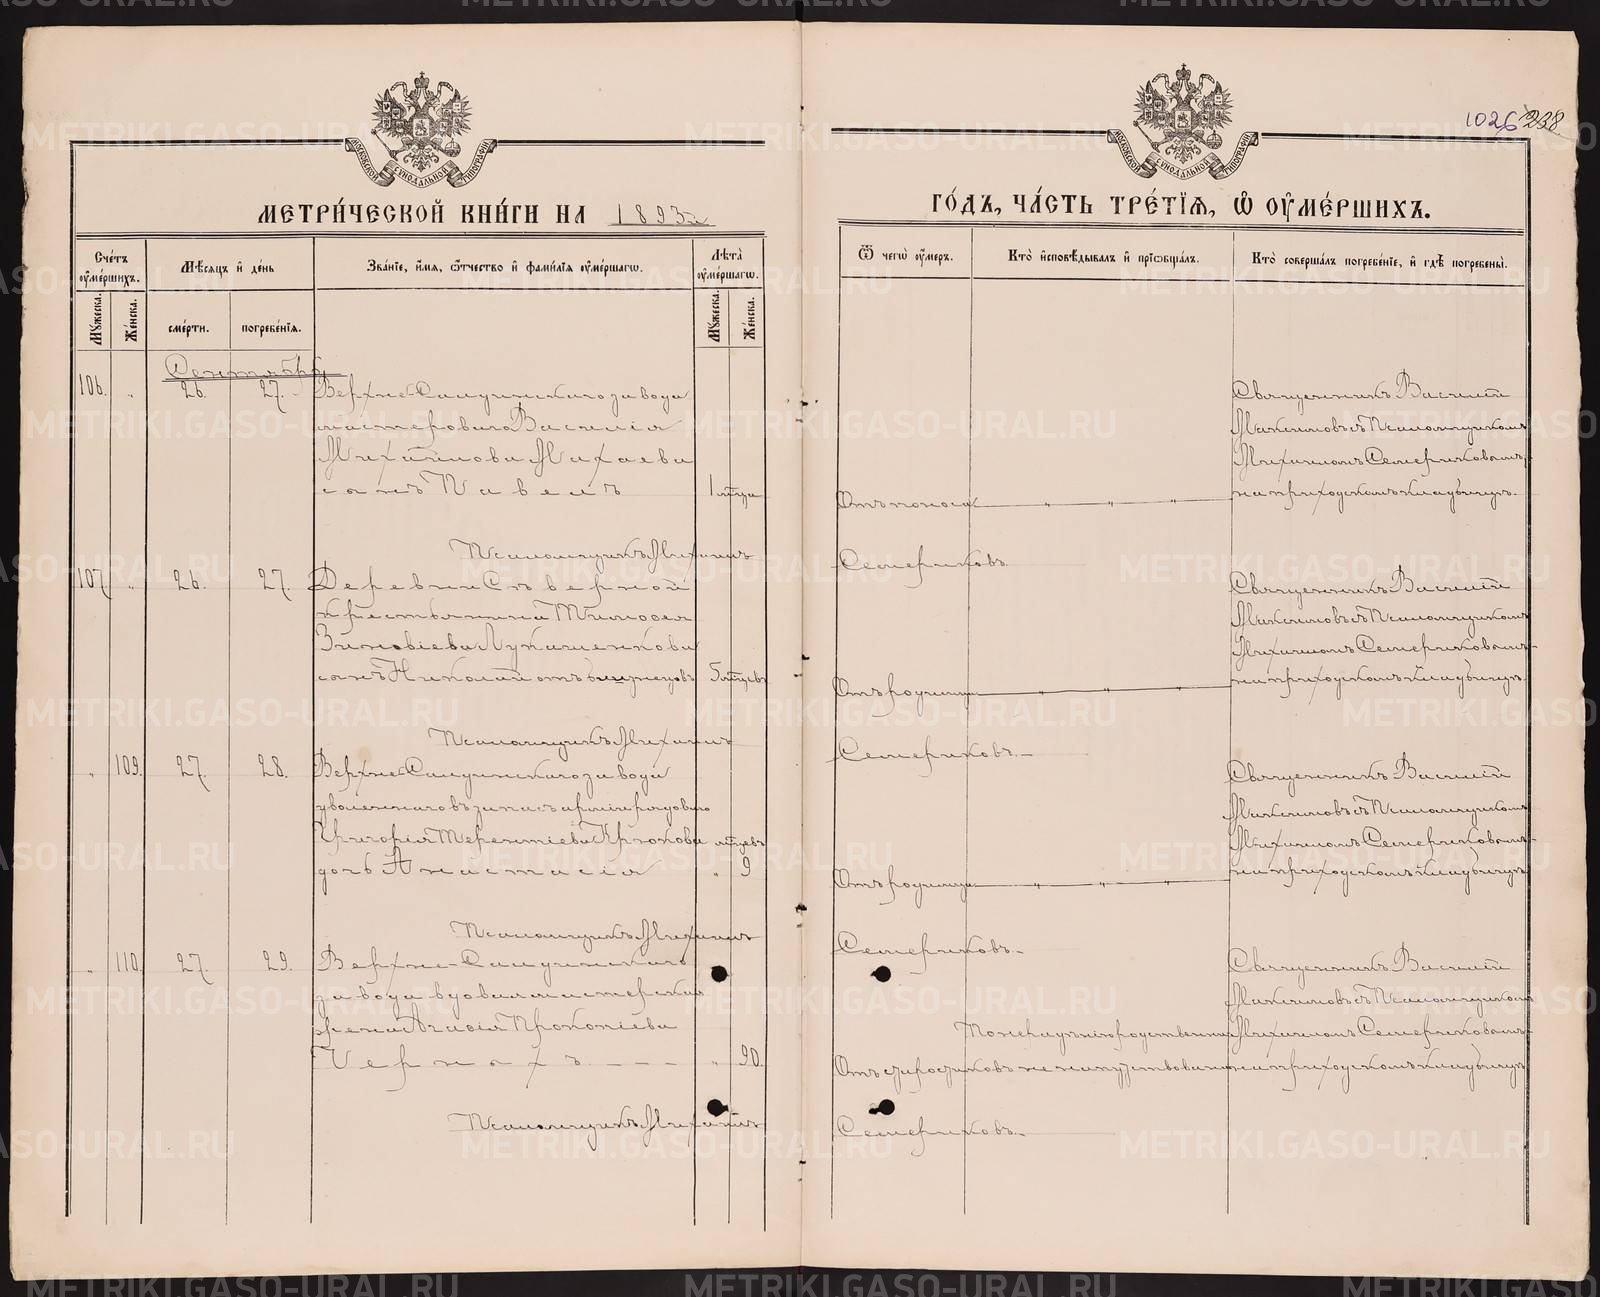 1026 238
МЕТРИ́ЧЕСКОЙ КНИ́ГИ НА 1893й
ГО́ДЪ, ЧА́СТЬ ТРЕ́ТІЯ, Ѡ ОУМЕ́РШИХЪ.
Сче́тъ оуме́ршихъ.
Мѣ́сяцъ и де́нь
Зва́ніе, и́мя, ѻтчество и фами́лія оуме́ршагѡ.
Лѣта̀ оуме́ршагѡ.
Мꙋжеска.
Же́нска.
сме́рти.
погребе́нія.
Мꙋжеска.
Же́нска.
Ѿ чегѡ̀ оу́меръ.
Кто̀ исповѣ́дывалъ и пріѡбща́лъ.
Кто̀ соверша́лъ погребе́ніе, и гдѣ̀ погребены̀.
Сентябрь
106. „ 26. 27. Верхне-Салдинскаго завода
мастероваго Василія
Михаилова Махаева
сынъ Павелъ 1 мѣсяца
Отъ поноса „ „ „
Священникъ Василій
Максимовъ съ Псаломщикомъ
Михаиломъ Семериковымъ,
на приходскомъ кладбищѣ.
Псаломщикъ Михаилъ Семериковъ
107. „ 26. 27. Деревни Сѣверной
крестьянина Тимофея
Зиновіева Лукашенкова
сынъ Николай отъ близнецовъ 5 мѣсяцевъ
Отъ родимца „ „ „
Священникъ Василій
Максимовъ съ Псаломщикомъ
Михаиломъ Семериковымъ
на приходскомъ кладбищѣ.
Псаломщикъ Михаилъ Семериковъ.
„ 109. 27. 28. Верхне-Салдинскаго завода
уволеннаго въ запасъ арміи рядоваго
Григорія Терентіева Крюкова мѣсяцевъ
дочь Анастасія „ 9
Отъ родимца „ „ „
Священникъ Василій
Максимовъ съ Псаломщикомъ
Михаиломъ Семериковымъ
на приходскомъ кладбищѣ
Псаломщикъ Михаилъ Семериковъ.
„ 110. 27. 29. Верхне-Салдинскаго
завода вдовая мастерская
жена Агафія Прокопіева
Черныхъ „ 90.
Отъ старости
По нерадѣнію родственниковъ не напутствована
Священникъ Василій
Максимовъ съ Псаломщикомъ
Михаиломъ Семериковымъ
на приходскомъ кладбищѣ
Псаломщикъ Михаилъ Семериковъ.
METRIKI.GASO-URAL.RU